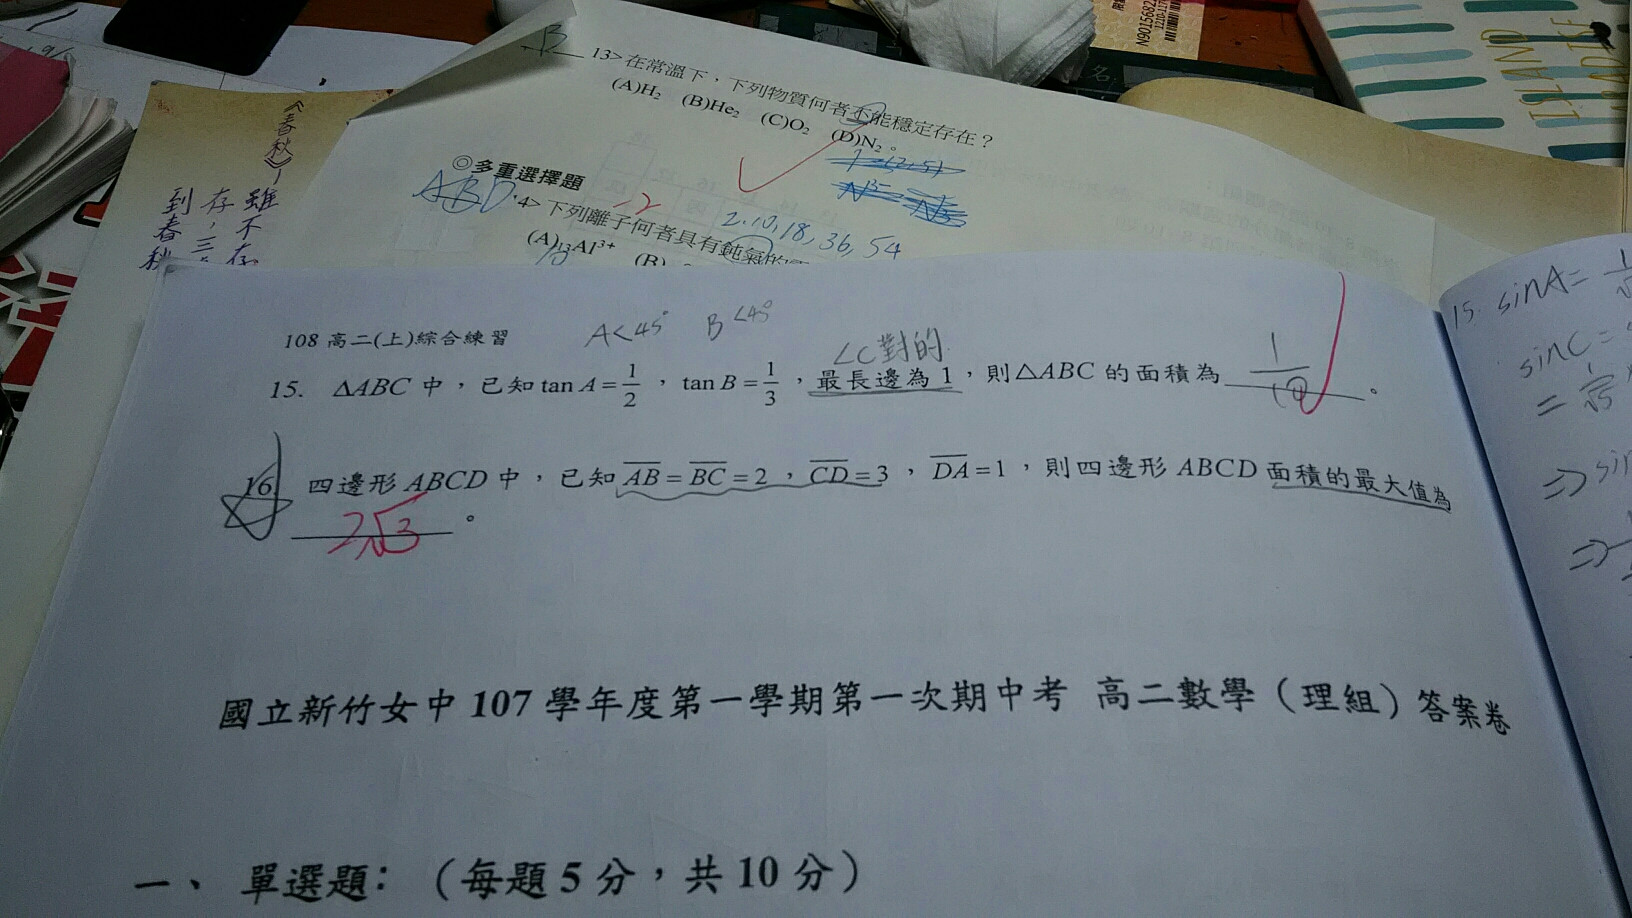 N901568
ISLAND
B 13>在常溫下，下列物質何者不能穩定存在？
(A)H₂ (B)He₂ (C)O₂ (D)N₂。
◎多重選擇題
-2
ABD 4>下列離子何者具有鈍氣的
2.10,18,36,54
(A)₁₃Al³⁺ (B)
《春秋》
雖不存
存，三
到春秋
108 高二(上)綜合練習
A<45° B<45°
∠C對的
15. ΔABC 中，已知 tan A = 1/2，tan B = 1/3，最長邊為 1，則△ABC 的面積為 1/10。
16 四邊形 ABCD 中，已知 AB = BC = 2，CD = 3，DA = 1，則四邊形 ABCD 面積的最大值為
2√3。
國立新竹女中 107 學年度第一學期第一次期中考 高二數學（理組）答案卷
一、 單選題：（每題 5 分，共 10 分）
15. sinA=
sinC=